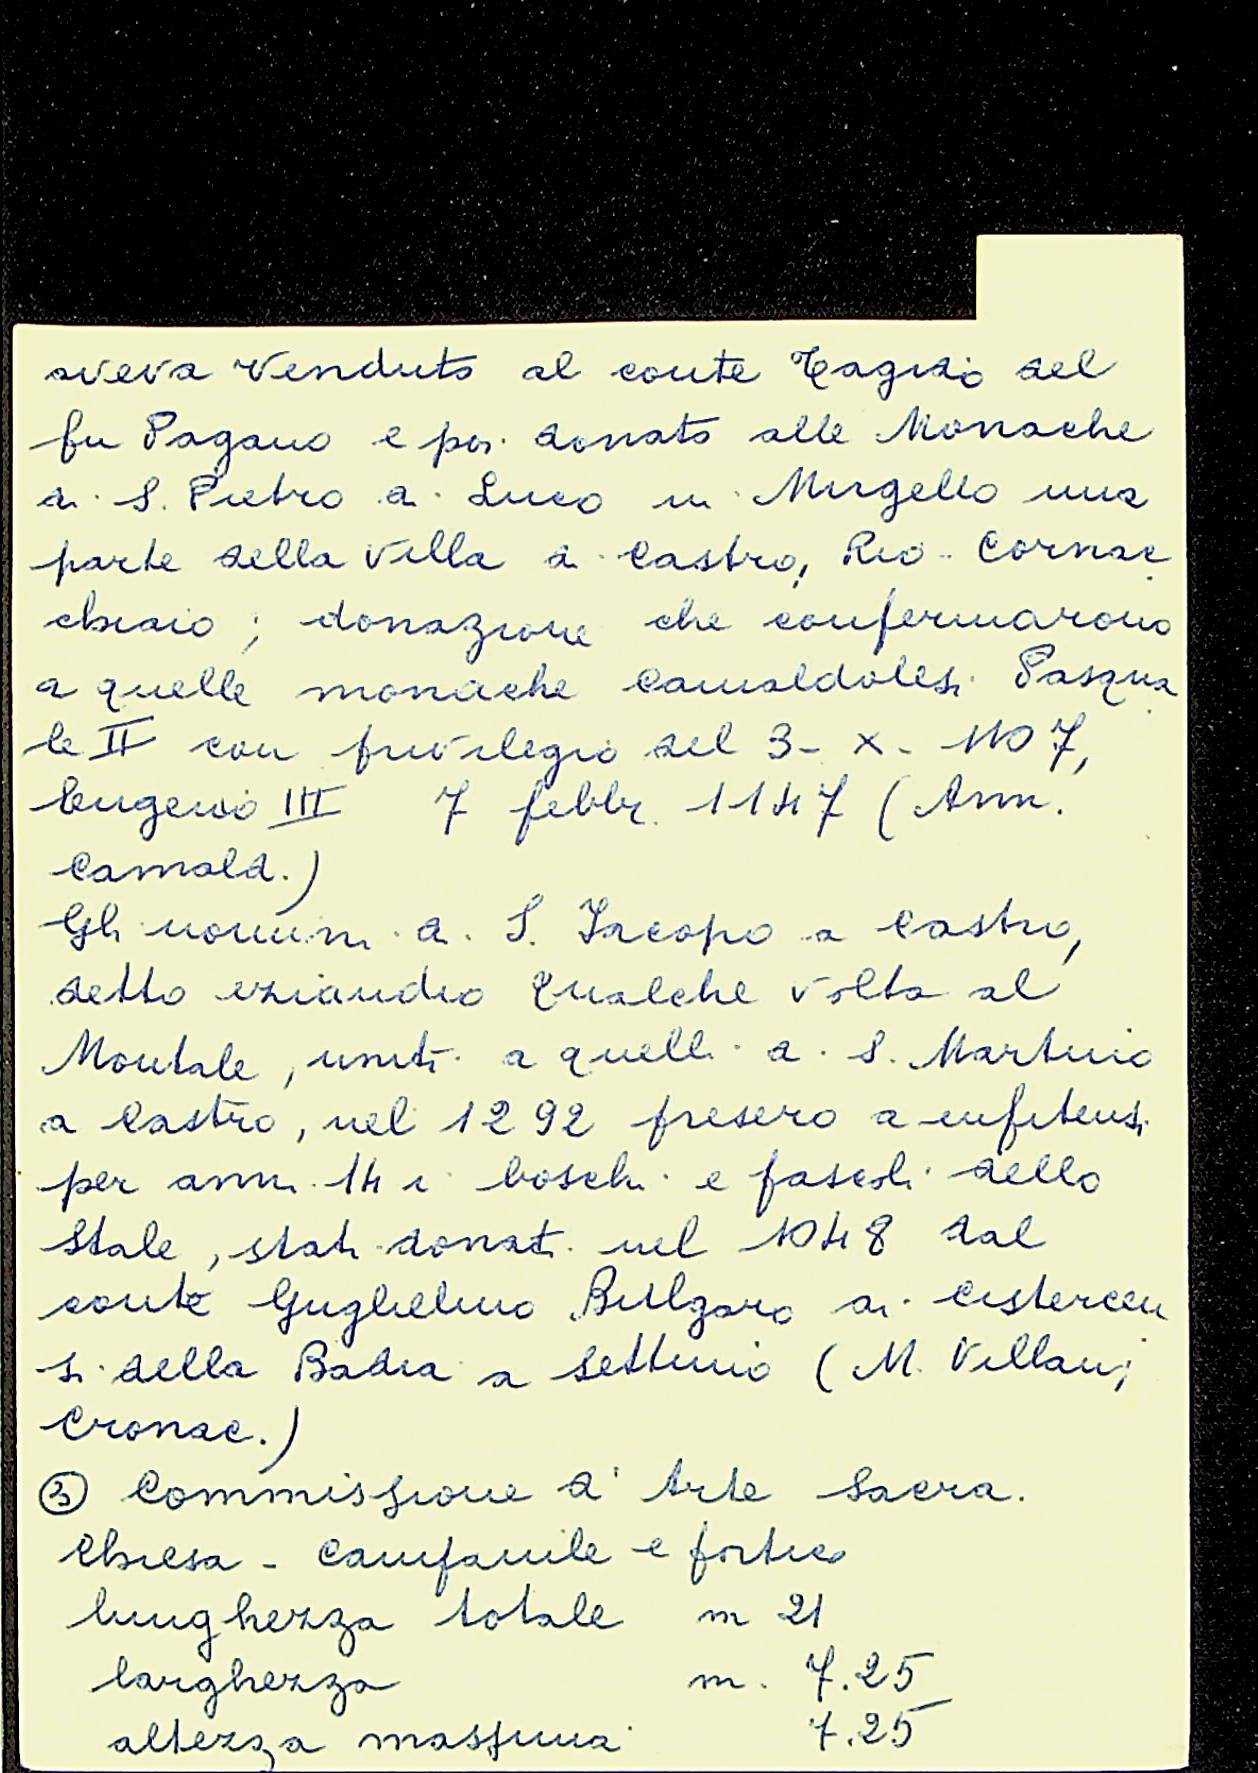 aveva venduto al conte Tagidio del
fu Pagano e poi donato alle Monache
di S. Pietro a Luco in Mugello una
parte della Villa di Castro, Rio - Cornac
chiaio ; donazione che confermarono
a quelle monache camaldolesi Pasqua
le II con privilegio del 3 - X - 1107,
Eugenio III 7 febbr. 1147 ( Ann.
Camald.)
Gli uomini di S. Jacopo a Castro,
detto eziandio qualche volta al
Montale, uniti a quelli di S. Martino
a Castro, nel 1292 presero a enfiteusi
per anni 14 i boschi e pascoli dello
Stale, stati donati nel 1048 dal
conte Guglielmo Bulgaro ai cistercen
si della Badia a Settimo ( M. Villani,
Cronac.)
③ Commissione d'Arte Sacra.
Chiesa - campanile e portico
lunghezza totale m 21
larghezza m. 7.25
altezza massima 7.25